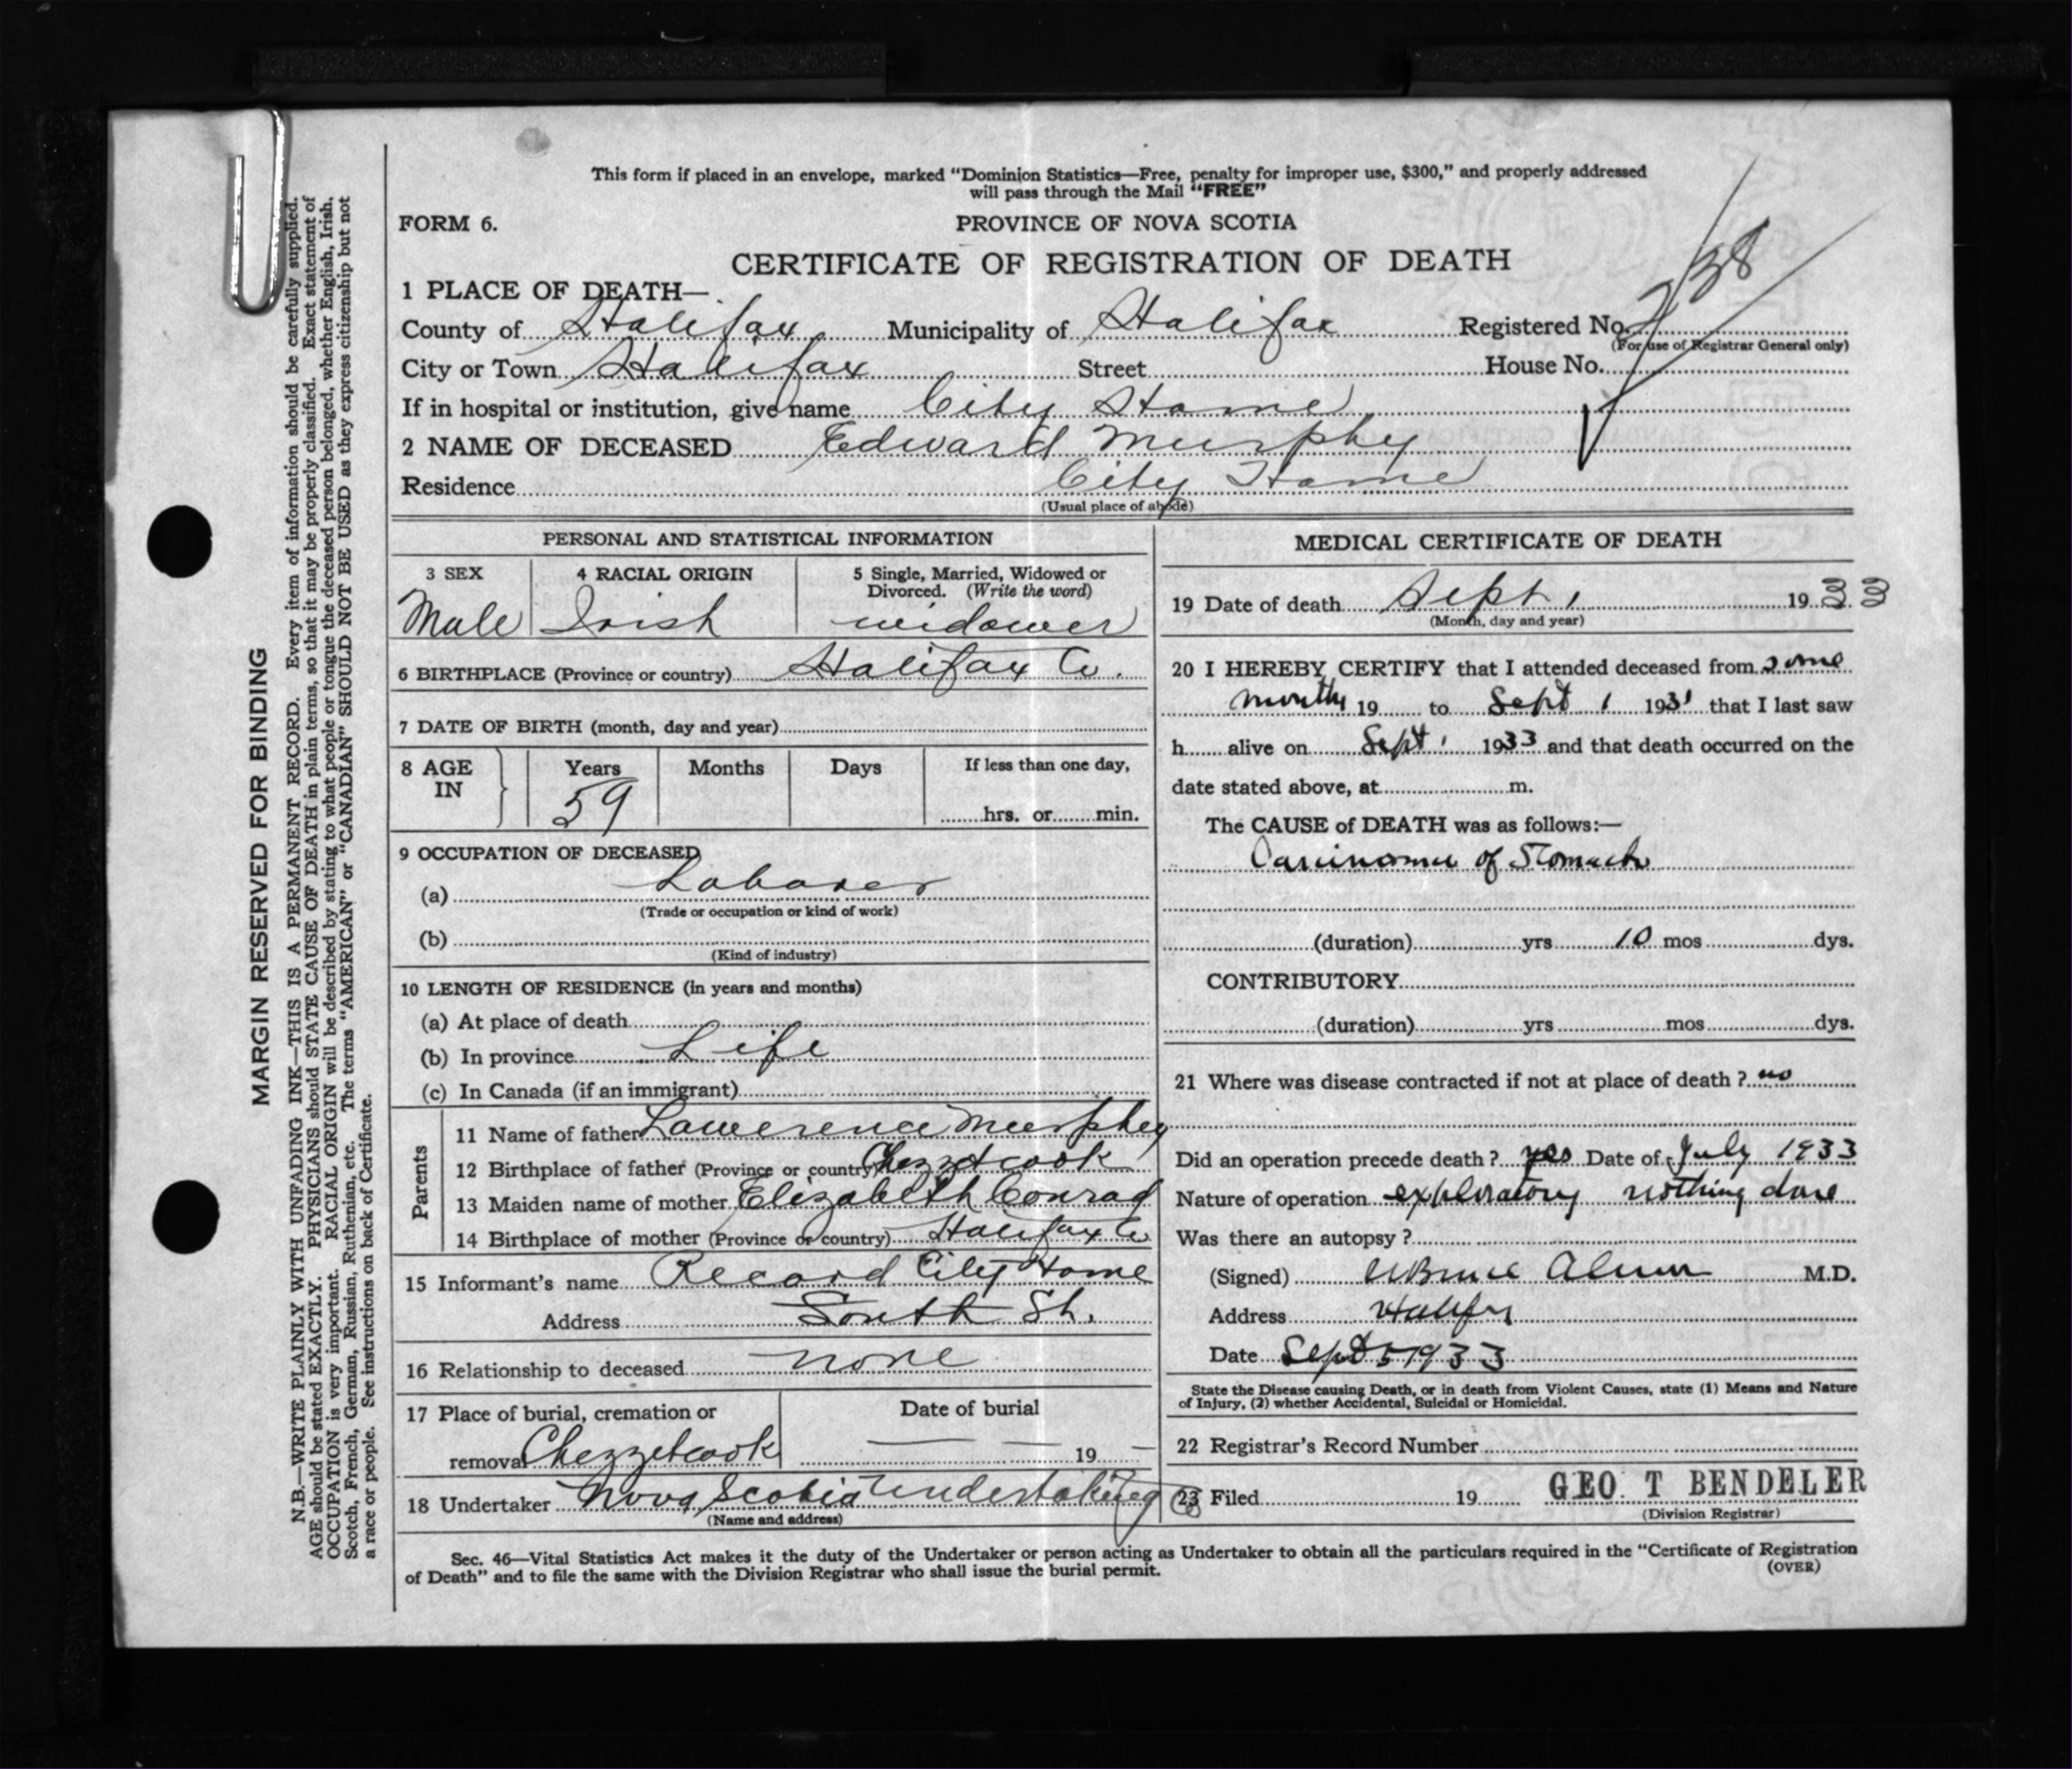 This form if placed in an envelope, marked "Dominion Statistics—Free, penalty for improper use, $300," and properly addressed
will pass through the Mail "FREE"
FORM 6.
PROVINCE OF NOVA SCOTIA
CERTIFICATE OF REGISTRATION OF DEATH
1 PLACE OF DEATH—
County of Halifax Municipality of Halifax Registered No. 238
(For use of Registrar General only)
City or Town Halifax Street House No.
If in hospital or institution, give name City Home
2 NAME OF DECEASED Edward Murphy
Residence City Home
(Usual place of abode)
PERSONAL AND STATISTICAL INFORMATION
3 SEX 4 RACIAL ORIGIN 5 Single, Married, Widowed or
Divorced. (Write the word)
Male Irish widower
6 BIRTHPLACE (Province or country) Halifax Co.
7 DATE OF BIRTH (month, day and year)
8 AGE Years Months Days If less than one day,
IN 59 hrs. or min.
9 OCCUPATION OF DECEASED
(a) Laborer
(Trade or occupation or kind of work)
(b)
(Kind of industry)
10 LENGTH OF RESIDENCE (in years and months)
(a) At place of death
(b) In province Life
(c) In Canada (if an immigrant)
Parents
11 Name of father Lawerence Murphy
12 Birthplace of father (Province or country) Chezzetcook
13 Maiden name of mother Elizabeth Conrad
14 Birthplace of mother (Province or country) Halifax Co
15 Informant's name Record City Home
Address South St.
16 Relationship to deceased none
17 Place of burial, cremation or Date of burial
removal Chezzetcook 19
18 Undertaker Nova Scotia Undertaking Co
(Name and address)
MEDICAL CERTIFICATE OF DEATH
19 Date of death Sept 1 1933
(Month, day and year)
20 I HEREBY CERTIFY that I attended deceased from some
months 19 to Sept 1 193 that I last saw
h alive on Sept 1 1933 and that death occurred on the
date stated above, at m.
The CAUSE of DEATH was as follows:—
Carcinoma of Stomach
(duration) yrs 10 mos dys.
CONTRIBUTORY
(duration) yrs mos dys.
21 Where was disease contracted if not at place of death ? no
Did an operation precede death ? yes Date of July 1933
Nature of operation exploratory nothing done
Was there an autopsy ?
(Signed) M.D.
Address Halifax
Date Sept 5 1933
State the Disease causing Death, or in death from Violent Causes, state (1) Means and Nature
of Injury, (2) whether Accidental, Suicidal or Homicidal.
22 Registrar's Record Number
23 Filed 19 GEO. T BENDELER
(Division Registrar)
Sec. 46—Vital Statistics Act makes it the duty of the Undertaker or person acting as Undertaker to obtain all the particulars required in the "Certificate of Registration
of Death" and to file the same with the Division Registrar who shall issue the burial permit.
(OVER)
MARGIN RESERVED FOR BINDING
N.B.—WRITE PLAINLY WITH UNFADING INK—THIS IS A PERMANENT RECORD. Every item of information should be carefully supplied.
AGE should be stated EXACTLY. PHYSICIANS should STATE CAUSE OF DEATH in plain terms, so that it may be properly classified. Exact statement of
OCCUPATION is very important. RACIAL ORIGIN will be described by stating to what people or tongue the deceased person belonged, whether English, Irish,
Scotch, French, German, Russian, Ruthenian, etc. The terms "AMERICAN" or "CANADIAN" SHOULD NOT BE USED as they express citizenship but not
a race or people. See instructions on back of Certificate.